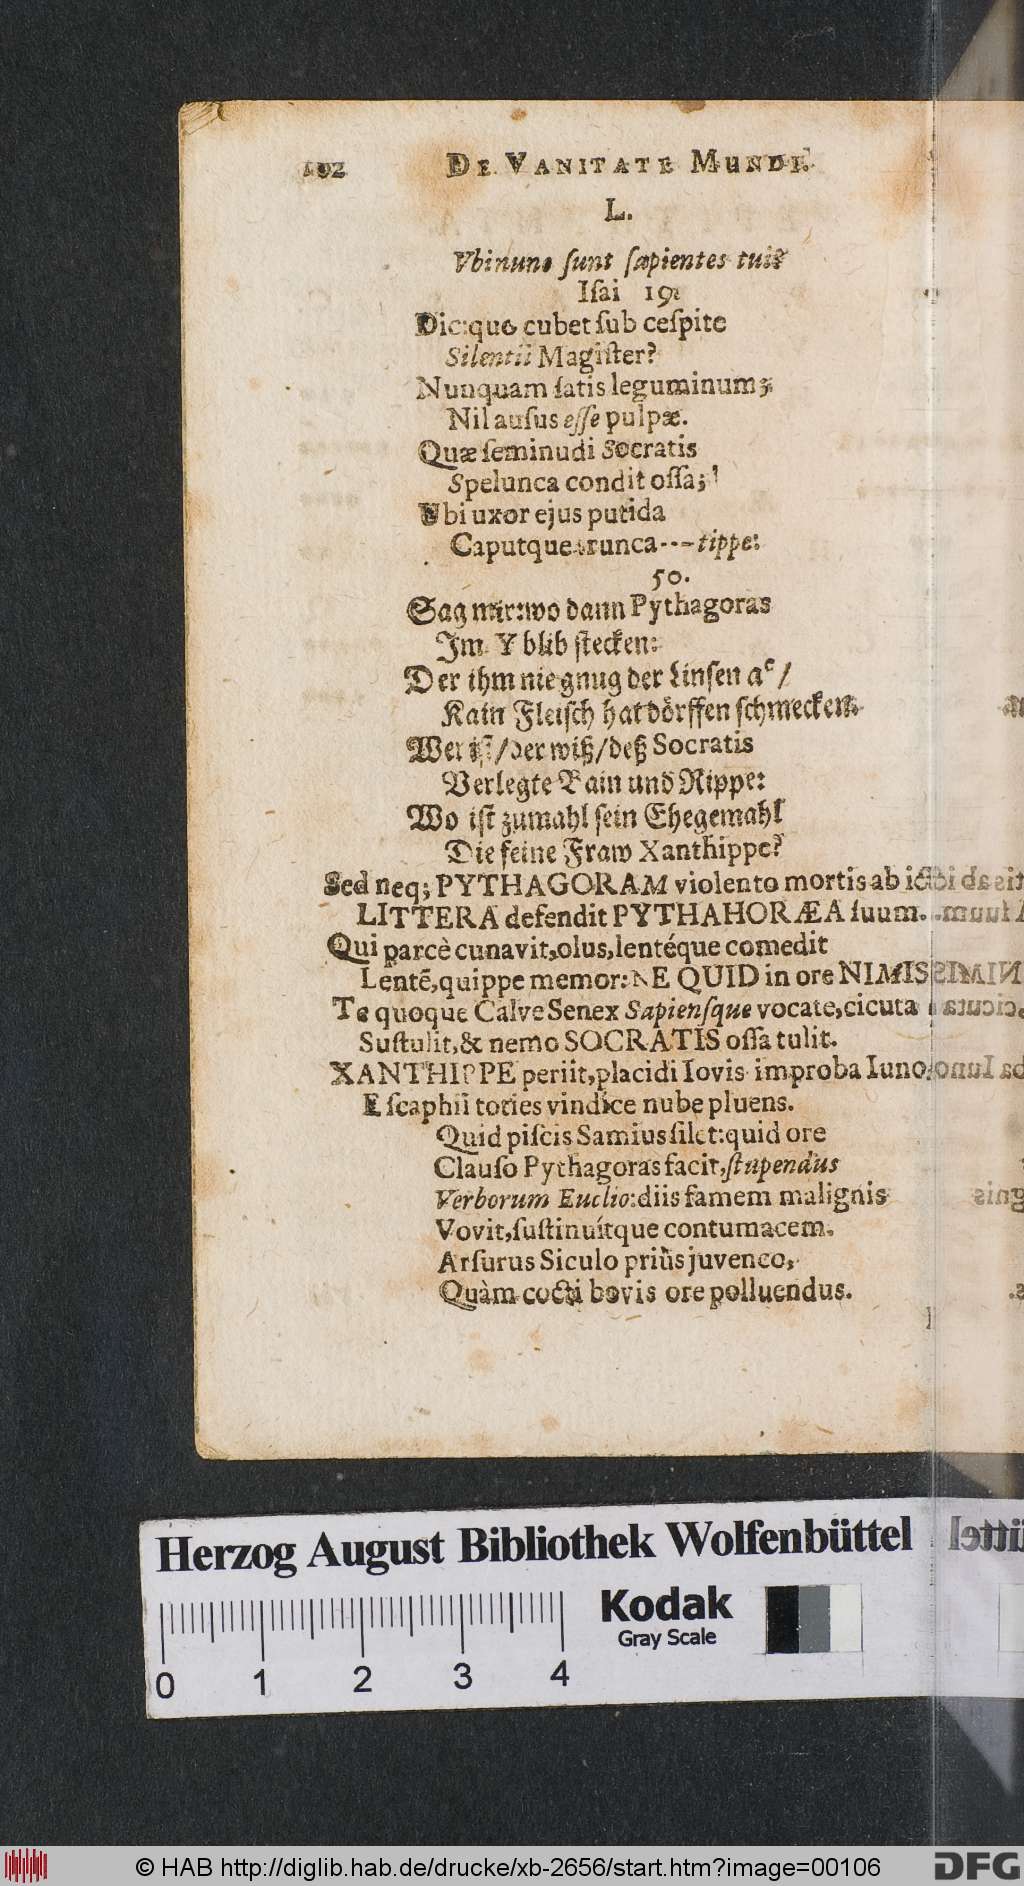 102 DE VANITATE MUNDI.
L.
Vbi nunc ſunt ſapientes tui?
Iſai 19.
Dic: quo cubet ſub ceſpite
Silentii Magiſter?
Nunquam ſatis leguminum;
Nil auſus eſſe pulpæ.
Quæ ſeminudi Socratis
Spelunca condit oſſa;
Ubi uxor ejus putida
Caputque trunca---tippe:
50.
Sag mir: wo dann Pythagoras
Im Y blib ſtecken:
Der ihm nie gnug der Linſen aß/
Kain Fleiſch hat dörffen ſchmecken.
Wer iſt/der wiß/deß Socratis
Verlegte Bain und Rippe:
Wo iſt zumahl ſein Ehegemahl
Die feine Fraw Xanthippe?
Sed neq; PYTHAGORAM violento mortis ab ictu
LITTERA defendit PYTHAHORÆA ſuum.
Qui parcè cunavit, olus, lentéque comedit
Lentẽ, quippe memor: NE QUID in ore NIMIS
Te quoque Calve Senex Sapienſque vocate, cicuta
Suſtulit, & nemo SOCRATIS oſſa tulit.
XANTHIPPE periit, placidi Iovis improba Iuno,
E ſcaphii toties vindice nube pluens.
Quid piſcis Samius ſilet: quid ore
Clauſo Pythagoras facit, ſtupendus
Verborum Euclio: diis famem malignis
Vovit, ſuſtinuítque contumacem.
Arſurus Siculo priùs juvenco,
Quàm cocti bovis ore polluendus.
Herzog August Bibliothek Wolfenbüttel
Kodak
Gray Scale
0 1 2 3 4
© HAB http://diglib.hab.de/drucke/xb-2656/start.htm?image=00106
DFG